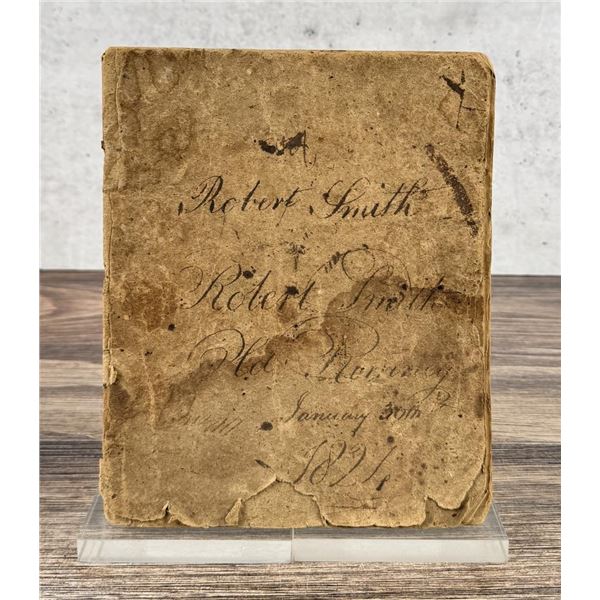 Robert Smith
Robert Smith
Old
January 30th
1824